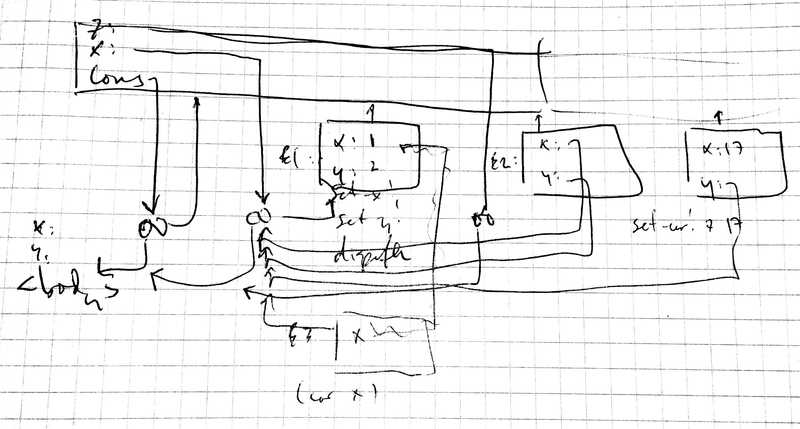 z:
x:
cons
E1:
x: 1
y: 2
set-x!
set-y!
dispatch
E2:
x:
y:
x: 17
y:
x:
y:
<body>
E3
x
(car x)